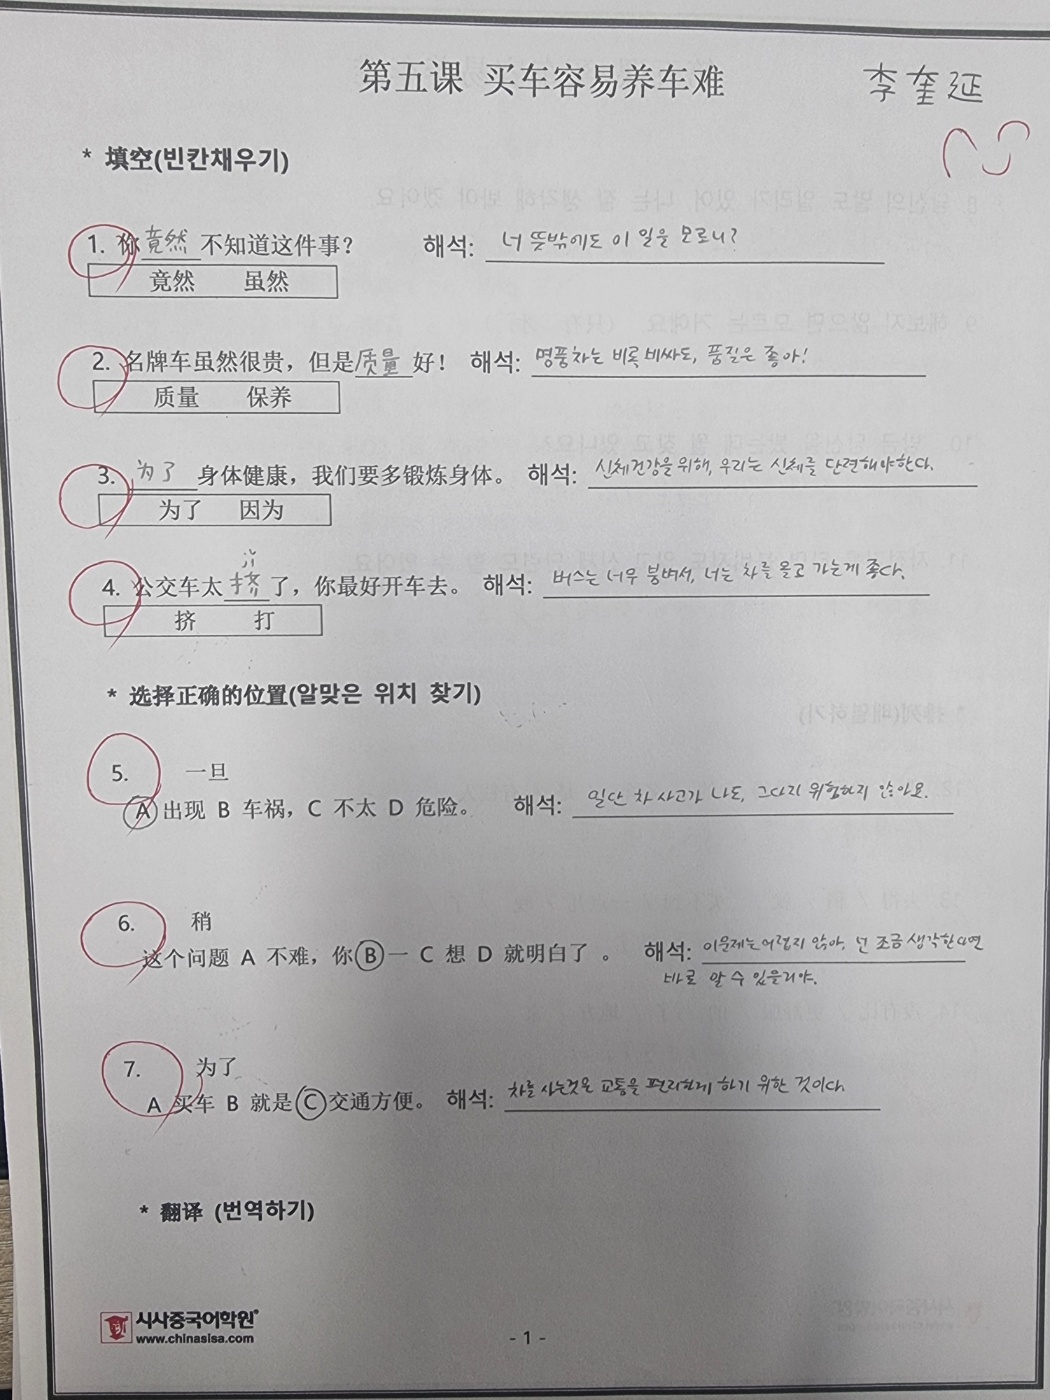 第五课 买车容易养车难
李奎延
* 填空(빈칸채우기)
1. 你竟然不知道这件事? 해석: 너 뜻밖에도 이 일을 모르니?
竟然 虽然
2. 名牌车虽然很贵，但是质量好！ 해석: 명품차는 비록 비싸도, 품질은 좋아!
质量 保养
3. 为了 身体健康，我们要多锻炼身体。 해석: 신체건강을 위해, 우리는 신체를 단련해야한다.
为了 因为
4. 公交车太挤了，你最好开车去。 해석: 버스는 너무 붐벼서, 너는 차를 몰고 가는게 좋다.
挤 打
* 选择正确的位置(알맞은 위치 찾기)
5. 一旦
A 出现 B 车祸，C 不太 D 危险。 해석: 일단 차 사고가 나도, 그다지 위험하지 않아요.
6. 稍
这个问题 A 不难，你 B 一 C 想 D 就明白了 。 해석: 이문제는어렵지 않아, 넌 조금 생각한다면
바로 알 수 있을거야.
7. 为了
A 买车 B 就是 C 交通方便。 해석: 차를 사는것은 교통을 편리하게 하기 위한 것이다.
* 翻译 (번역하기)
시사중국어학원
www.chinasisa.com
- 1 -